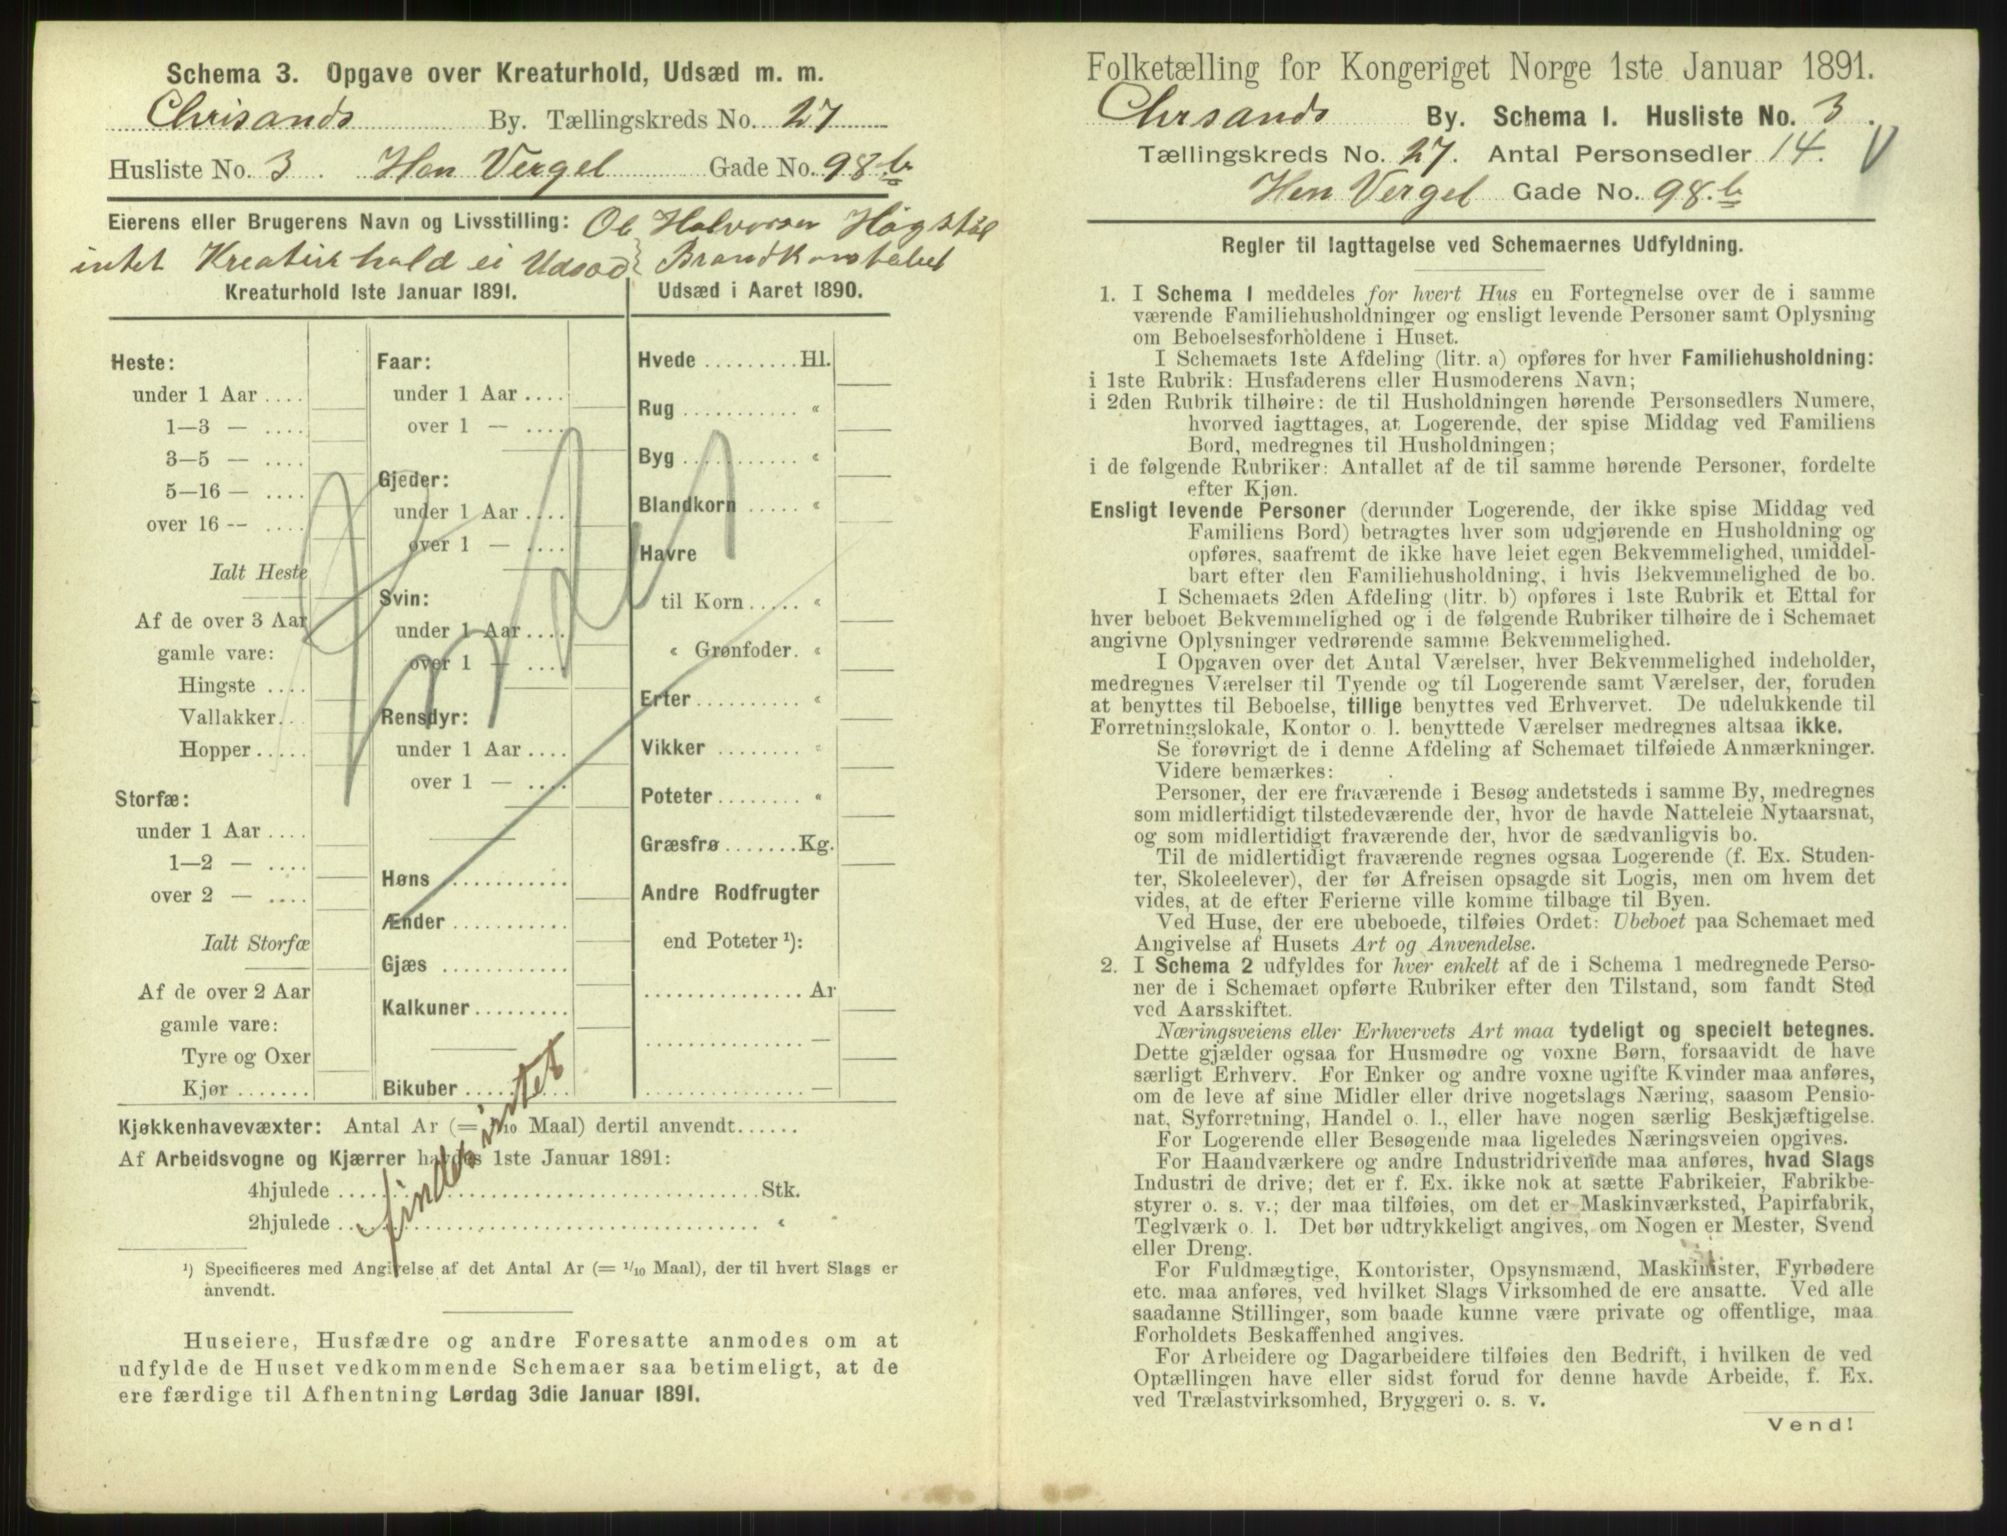 Schema 3. Opgave over Kreaturhold, Udsæd m. m.
Chrisands By. Tællingskreds No. 27
Husliste No. 3. Hen Vergel Gade No. 98.b
Eierens eller Brugerens Navn og Livsstilling: Ol Halvorsen
intet Kreaturhold ei Udsæd Brandkonstabel
Kreaturhold 1ste Januar 1891.
Heste:
under 1 Aar ....
1—3 — ....
3—5 — ....
5—16 — ....
over 16 -- ....
Ialt Heste
Af de over 3 Aar
gamle vare:
Hingste ....
Vallakker..
Hopper .....
Storfæ:
under 1 Aar ....
1—2 — ....
over 2 — ....
Ialt Storfæ
Af de over 2 Aar
gamle vare:
Tyre og Oxer
Kjør .......
Faar:
under 1 Aar ....
over 1 — ....
Gjeder:
under 1 Aar ....
over 1 — ....
Svin:
under 1 Aar ....
over 1 — ....
Rensdyr:
under 1 Aar ....
over 1 — ....
Høns ...........
Ænder ..........
Gjæs ...........
Kalkuner ........
Bikuber ........
findes intet
Udsæd i Aaret 1890.
Hvede ......... Hl.
Rug ........... «
Byg ........... «
Blandkorn ..... «
Havre
til Korn ..... «
« Grønfoder. «
Erter .......... «
Vikker ........ «
Poteter ........ «
Græsfrø ....... Kg.
Andre Rodfrugter
end Poteter ¹):
............... Ar
............... —
............... —
Kjøkkenhavevæxter: Antal Ar (= 1/10 Maal) dertil anvendt......
Af Arbeidsvogne og Kjærrer havdes 1ste Januar 1891:
4hjulede ........................................ Stk.
2hjulede ........................................ «
¹) Specificeres med Angivelse af det Antal Ar (= 1/10 Maal), der til hvert Slags er
anvendt.
Huseiere, Husfædre og andre Foresatte anmodes om at
udfylde de Huset vedkommende Schemaer saa betimeligt, at de
ere færdige til Afhentning Lørdag 3die Januar 1891.
Folketælling for Kongeriget Norge 1ste Januar 1891.
Chrsands By. Schema I. Husliste No. 3.
Tællingskreds No. 27. Antal Personsedler 14.
Hen Vergel Gade No. 98.b
Regler til Iagttagelse ved Schemaernes Udfyldning.
1. I Schema I meddeles for hvert Hus en Fortegnelse over de i samme
værende Familiehusholdninger og ensligt levende Personer samt Oplysning
om Beboelsesforholdene i Huset.
I Schemaets 1ste Afdeling (litr. a) opføres for hver Familiehusholdning:
i 1ste Rubrik: Husfaderens eller Husmoderens Navn;
i 2den Rubrik tilhøire: de til Husholdningen hørende Personsedlers Numere,
hvorved iagttages, at Logerende, der spise Middag ved Familiens
Bord, medregnes til Husholdningen;
i de følgende Rubriker: Antallet af de til samme hørende Personer, fordelte
efter Kjøn.
Ensligt levende Personer (derunder Logerende, der ikke spise Middag ved
Familiens Bord) betragtes hver som udgjørende en Husholdning og
opføres, saafremt de ikke have leiet egen Bekvemmelighed, umiddel-
bart efter den Familiehusholdning, i hvis Bekvemmelighed de bo.
I Schemaets 2den Afdeling (litr. b) opføres i 1ste Rubrik et Ettal for
hver beboet Bekvemmelighed og i de følgende Rubriker tilhøire de i Schemaet
angivne Oplysninger vedrørende samme Bekvemmelighed.
I Opgaven over det Antal Værelser, hver Bekvemmelighed indeholder,
medregnes Værelser til Tyende og til Logerende samt Værelser, der, foruden
at benyttes til Beboelse, tillige benyttes ved Erhvervet. De udelukkende til
Forretningslokale, Kontor o. l. benyttede Værelser medregnes altsaa ikke.
Se forøvrigt de i denne Afdeling af Schemaet tilføiede Anmærkninger.
Videre bemærkes:
Personer, der ere fraværende i Besøg andetsteds i samme By, medregnes
som midlertidigt tilstedeværende der, hvor de havde Natteleie Nytaarsnat,
og som midlertidigt fraværende der, hvor de sædvanligvis bo.
Til de midlertidigt fraværende regnes ogsaa Logerende (f. Ex. Studen-
ter, Skoleelever), der før Afreisen opsagde sit Logis, men om hvem det
vides, at de efter Ferierne ville komme tilbage til Byen.
Ved Huse, der ere ubeboede, tilføies Ordet: Ubeboet paa Schemaet med
Angivelse af Husets Art og Anvendelse.
2. I Schema 2 udfyldes for hver enkelt af de i Schema 1 medregnede Perso-
ner de i Schemaet opførte Rubriker efter den Tilstand, som fandt Sted
ved Aarsskiftet.
Næringsveiens eller Erhvervets Art maa tydeligt og specielt betegnes.
Dette gjælder ogsaa for Husmødre og voxne Børn, forsaavidt de have
særligt Erhverv. For Enker og andre voxne ugifte Kvinder maa anføres,
om de leve af sine Midler eller drive nogetslags Næring, saasom Pensio-
nat, Syforretning, Handel o. l., eller have nogen særlig Beskjæftigelse.
For Logerende eller Besøgende maa ligeledes Næringsveien opgives.
For Haandværkere og andre Industridrivende maa anføres, hvad Slags
Industri de drive; det er f. Ex. ikke nok at sætte Fabrikeier, Fabrikbe-
styrer o. s. v.; der maa tilføies, om det er Maskinværksted, Papirfabrik,
Teglværk o. l. Det bør udtrykkeligt angives, om Nogen er Mester, Svend
eller Dreng.
For Fuldmægtige, Kontorister, Opsynsmænd, Maskinister, Fyrbødere
etc. maa anføres, ved hvilket Slags Virksomhed de ere ansatte. Ved alle
saadanne Stillinger, som baade kunne være private og offentlige, maa
Forholdets Beskaffenhed angives.
For Arbeidere og Dagarbeidere tilføies den Bedrift, i hvilken de ved
Optællingen have eller sidst forud for denne havde Arbeide, f. Ex.
ved Trælastvirksomhed, Bryggeri o. s. v.
Vend!